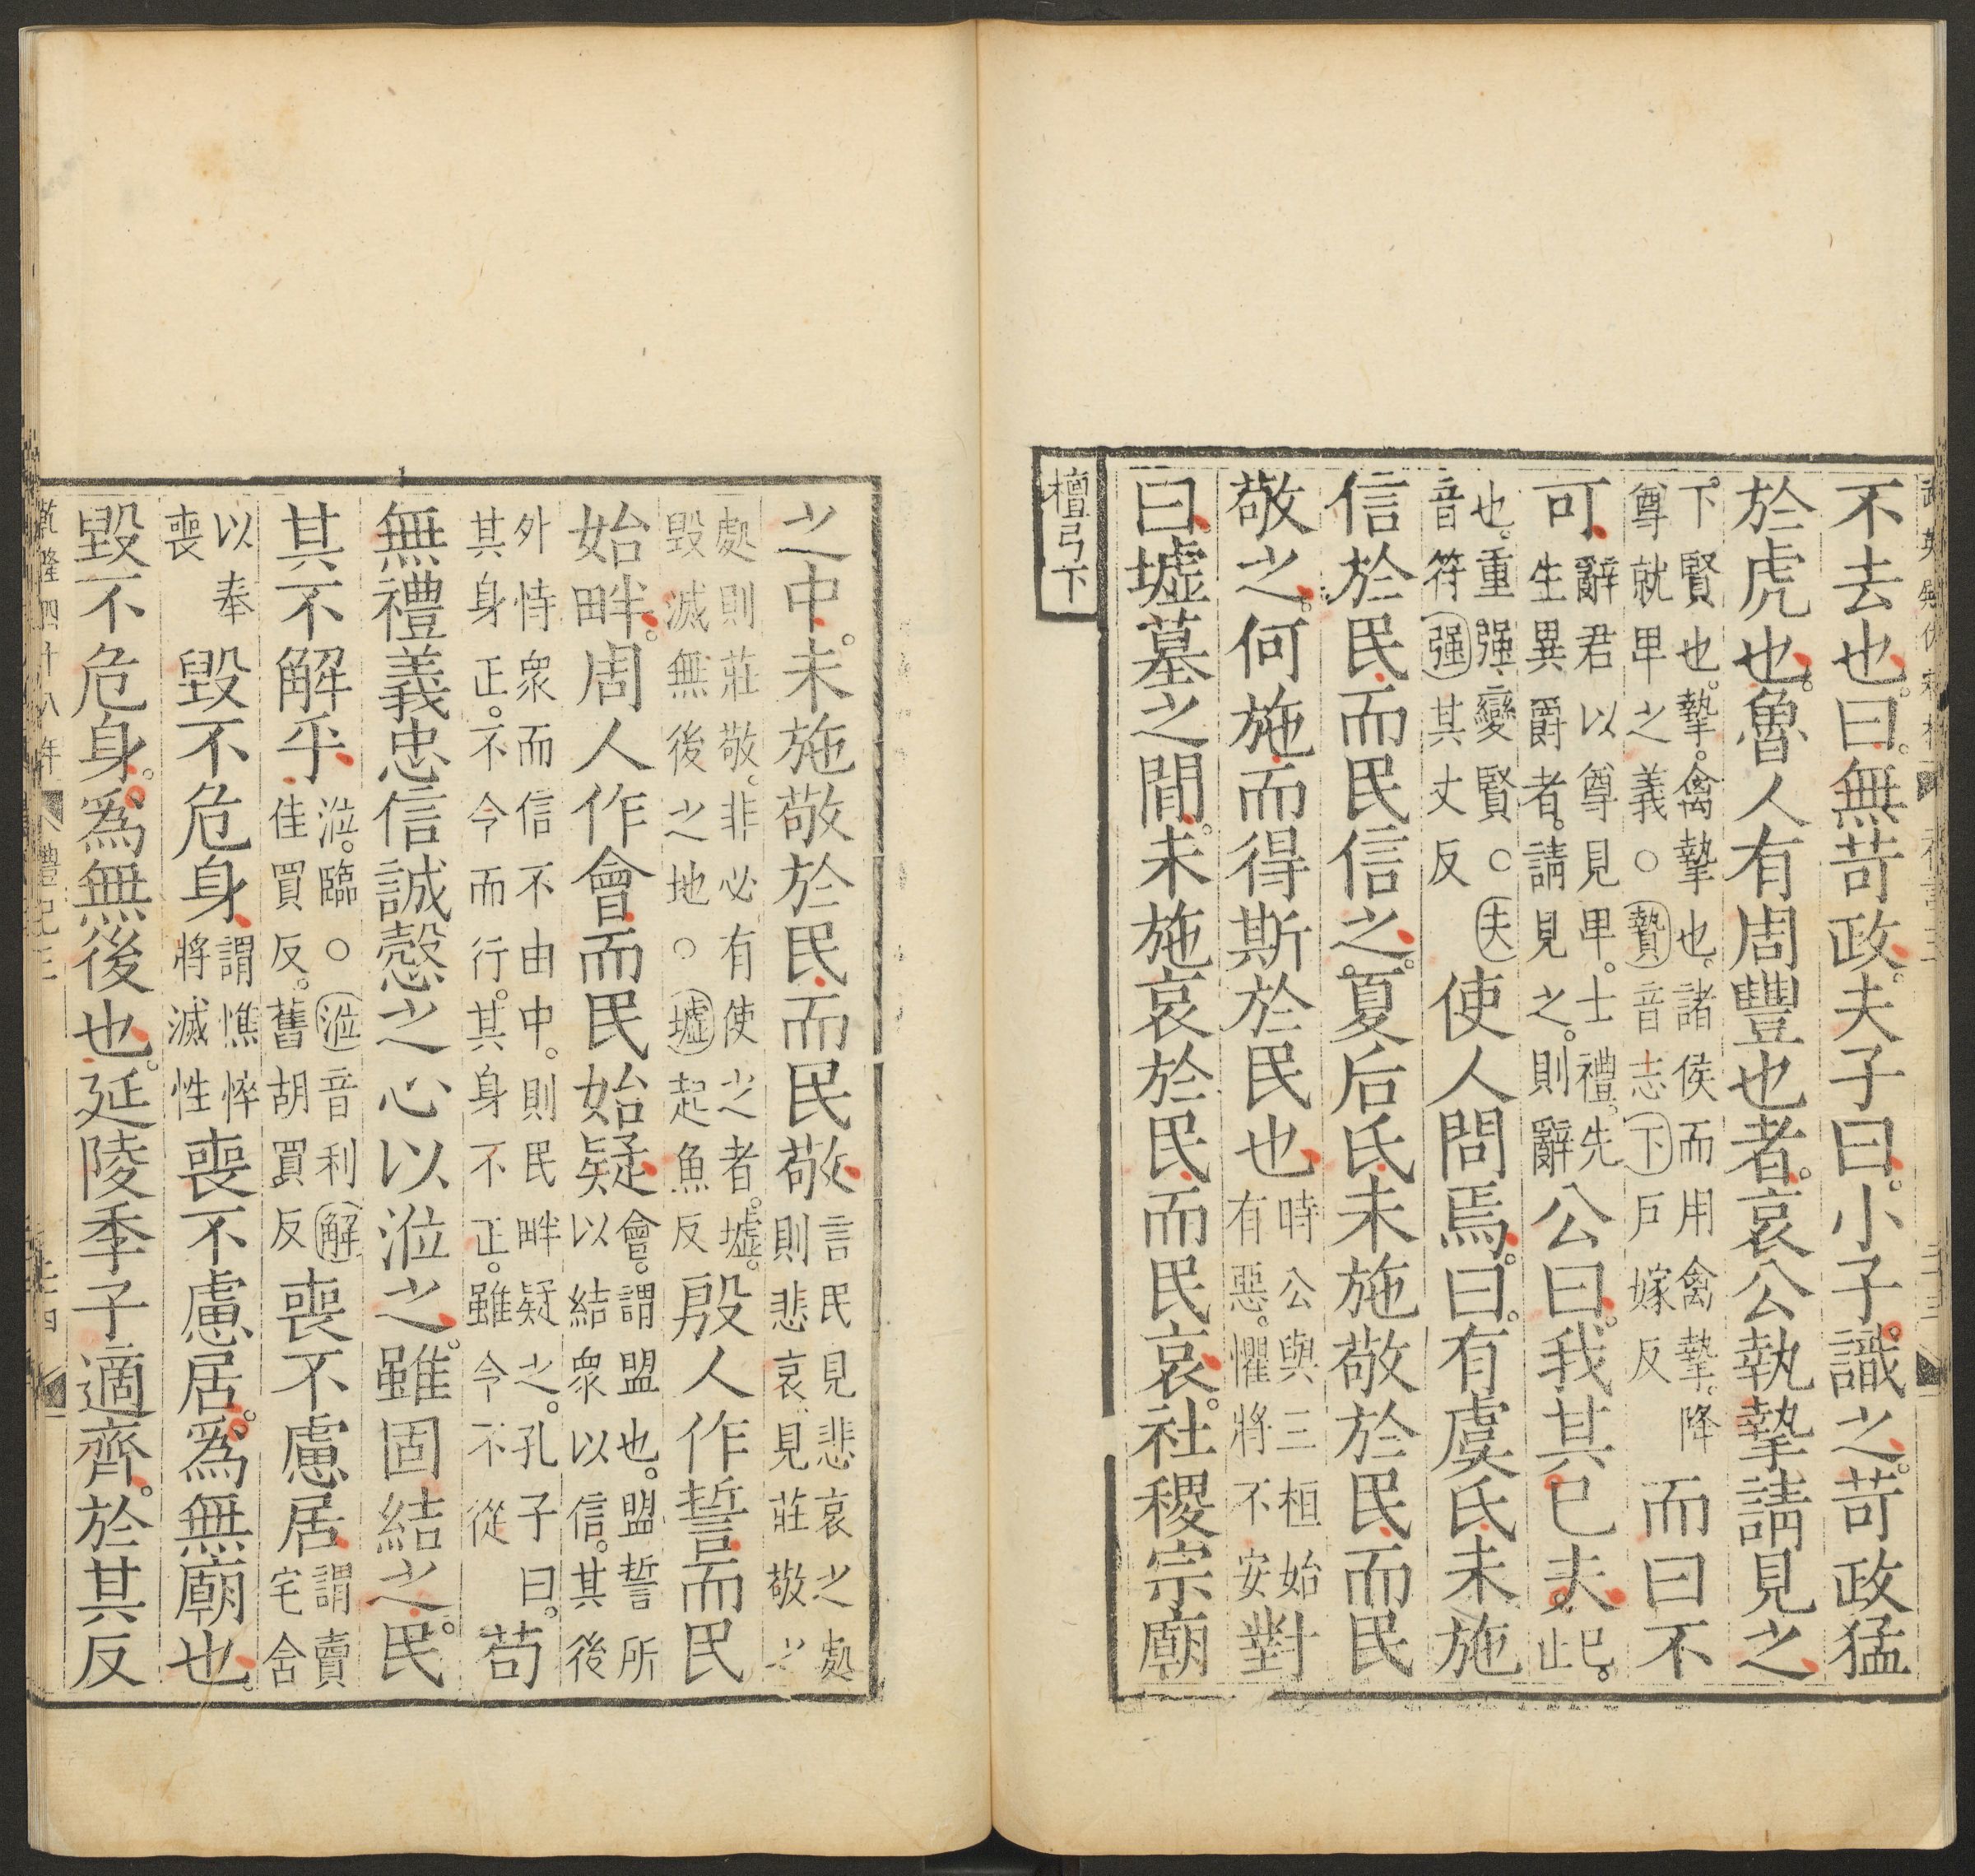 不去也。曰。無苛政。夫子曰。小子識之。苛政猛
於虎也。魯人有周豐也者。哀公執摯請見之
下賢也。摯。禽摯也。諸侯而用禽摯。降
尊就卑之義○贄音志下戶嫁反
而曰不
可
辭君以尊見卑。士禮。先
生異爵者。請見之。則辭
公曰。我其已夫
已。止
也。重強。變賢○夫
音符強其丈反
使人問焉。曰。有虞氏未施
信於民。而民信之。夏后氏未施敬於民。而民
敬之。何施而得斯於民也
時公與三桓始
有惡。懼將不安
對
曰。墟墓之間。未施哀於民。而民哀。社稷宗廟
檀弓下
之中。未施敬於民。而民敬
言民見悲哀之處
則悲哀。見莊敬之
處則莊敬。非必有使之者。墟。
毀滅無後之地○墟起魚反
殷人作誓。而民
始畔。周人作會。而民始疑
會。謂盟也。盟誓所
以結眾以信。其後
外恃眾而信不由中。則民畔疑之。孔子曰。
其身正。不令而行。其身不正。雖令不從
苟
無禮義忠信誠慤之心以涖之。雖固結之。民
其不解乎
涖。臨○涖音利解
佳買反。舊胡買反
喪不慮居
謂賣
宅舍
以奉
喪
毀不危身
謂憔悴
將滅性
喪不慮居。爲無廟也。
毀不危身。爲無後也。延陵季子適齊。於其反
乾隆四十八年
禮記三